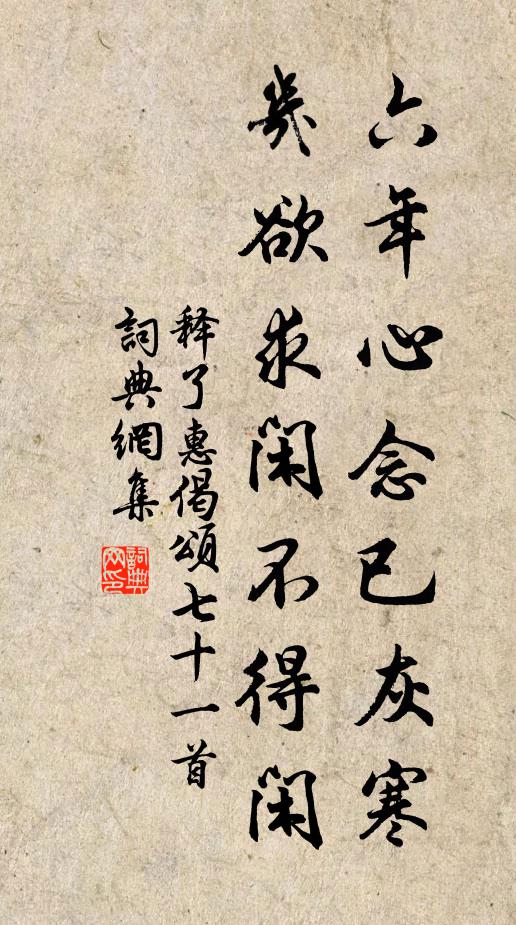 六年心念已灰寒
几欲求闲不得闲
释了惠偈颂七十一首
詞典網集
詞典网印